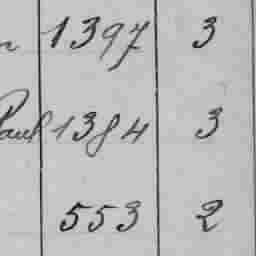 1397 3
Paul 1384 3
553 2